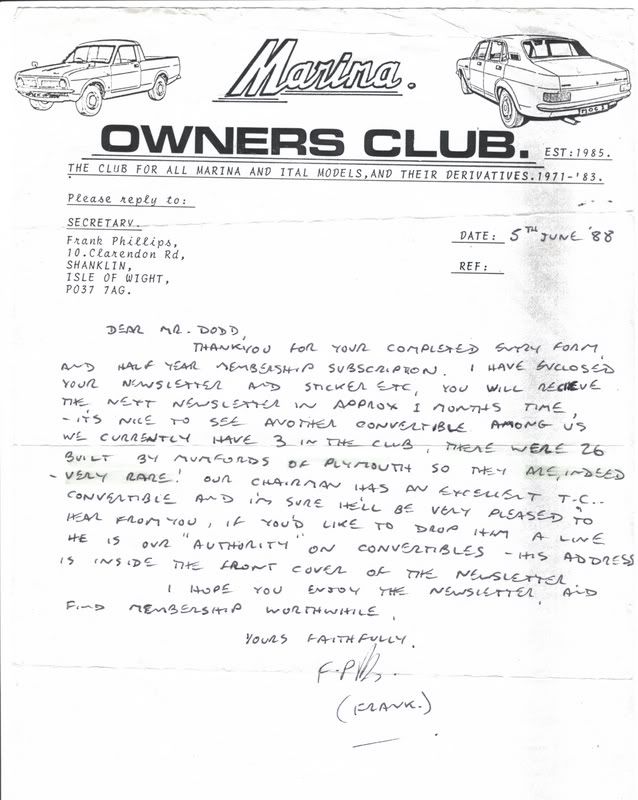 Marina.
OWNERS CLUB. EST:1985.
THE CLUB FOR ALL MARINA AND ITAL MODELS,AND THEIR DERIVATIVES.1971-'83.
Please reply to:
SECRETARY.
Frank Phillips,
10.Clarendon Rd,
SHANKLIN,
ISLE OF WIGHT,
PO37 7AG.
DATE: 5TH JUNE '88
REF:
DEAR MR. DODD,
THANKYOU FOR YOUR COMPLETED ENTRY FORM
AND HALF YEAR MEMBERSHIP SUBSCRIPTION. I HAVE ENCLOSED
YOUR NEWSLETTER AND STICKER ETC, YOU WILL RECIEVE
THE NEXT NEWSLETTER IN APPROX 1 MONTHS TIME,
- IT'S NICE TO SEE ANOTHER CONVERTIBLE AMONG US
WE CURRENTLY HAVE 3 IN THE CLUB, THERE WERE 26
BUILT BY MUMFORDS OF PLYMOUTH SO THEY ARE, INDEED
- VERY RARE! OUR CHAIRMAN HAS AN EXCELLENT T.C..
CONVERTIBLE AND I'M SURE HE'LL BE VERY PLEASED TO
HEAR FROM YOU, IF YOU'D LIKE TO DROP HIM A LINE
HE IS OUR "AUTHORITY" ON CONVERTIBLES - HIS ADDRESS
IS INSIDE THE FRONT COVER OF THE NEWSLETTER.
I HOPE YOU ENJOY THE NEWSLETTER, AND
FIND MEMBERSHIP WORTHWHILE,
YOURS FAITHFULLY.
(FRANK.)